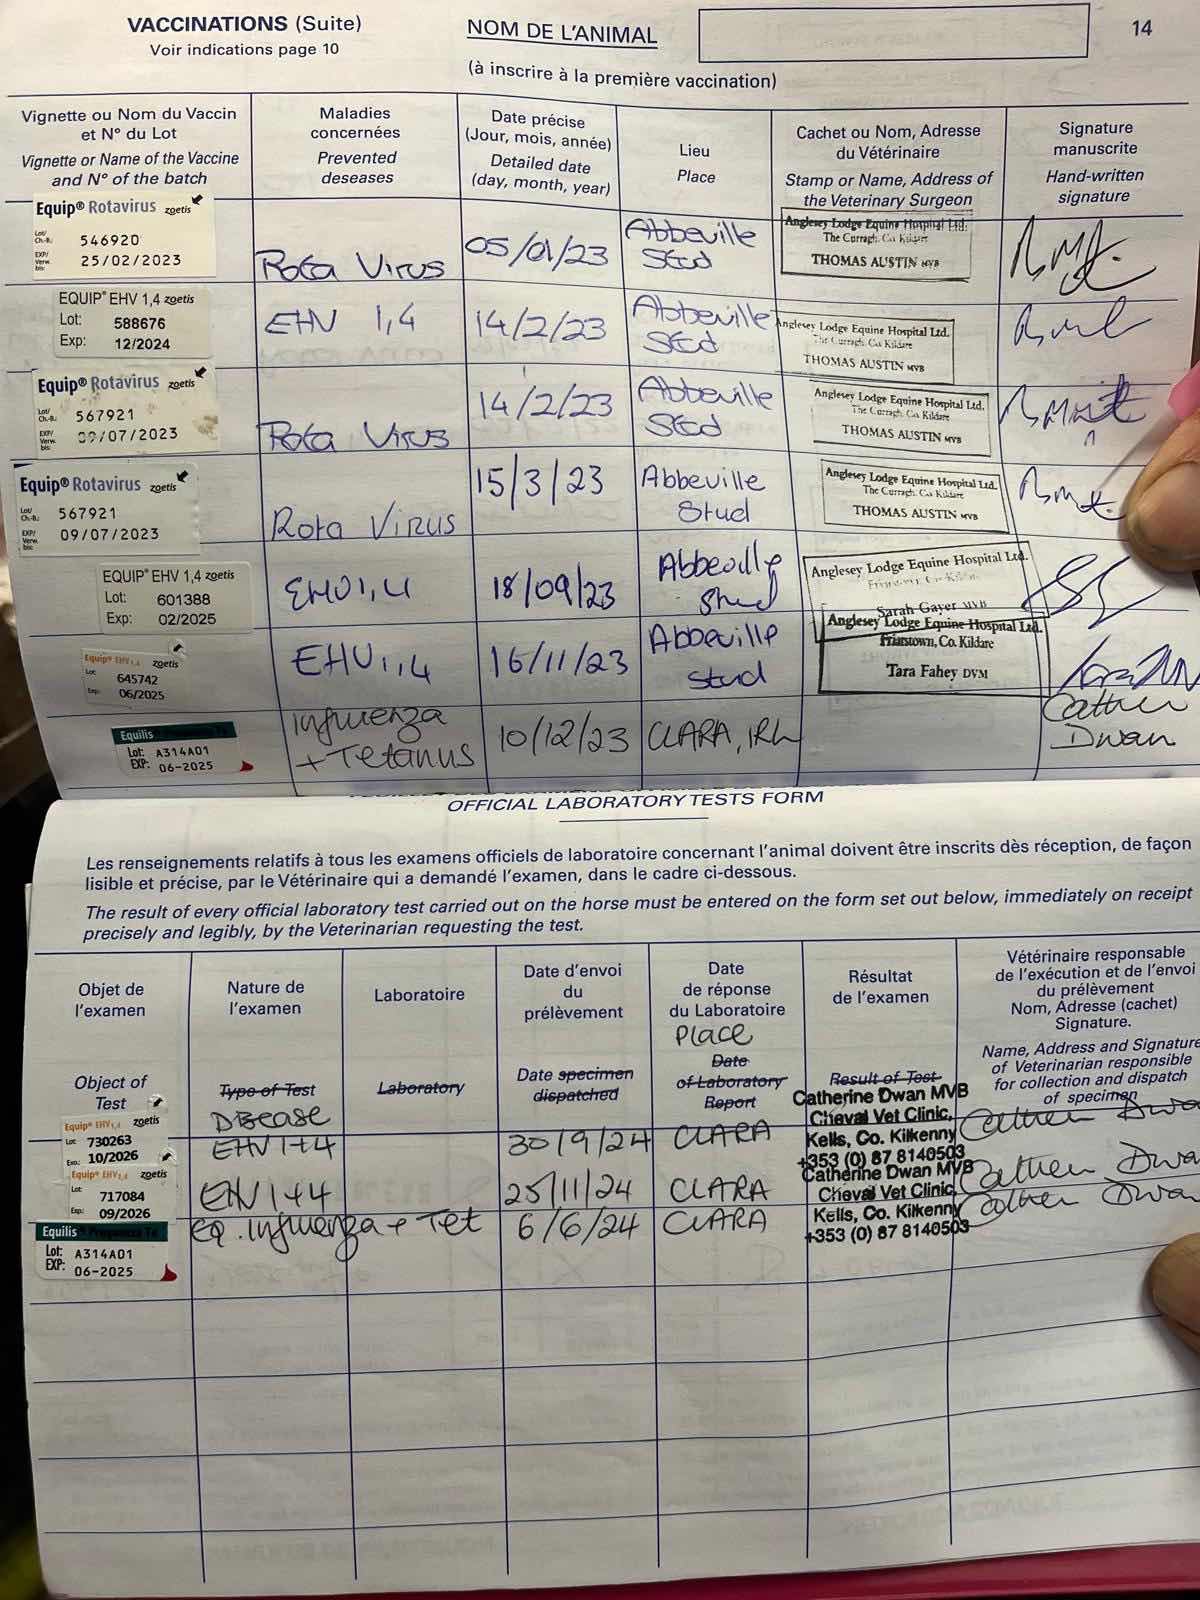 VACCINATIONS (Suite)
Voir indications page 10
NOM DE L'ANIMAL
(à inscrire à la première vaccination)
14
Vignette ou Nom du Vaccin
et N° du Lot
Vignette or Name of the Vaccine
and N° of the batch
Maladies
concernées
Prevented
deseases
Date précise
(Jour, mois, année)
Detailed date
(day, month, year)
Lieu
Place
Cachet ou Nom, Adresse
du Vétérinaire
Stamp or Name, Address of
the Veterinary Surgeon
Signature
manuscrite
Hand-written
signature
Equip® Rotavirus zoetis
Lot/
Ch.-B.: 546920
EXP/
Verw.
bis: 25/02/2023
Rota Virus
05/01/23
Abbeville
Stud
Anglesey Lodge Equine Hospital Ltd.
The Curragh. Co. Kildare
THOMAS AUSTIN MVB
EQUIP® EHV 1,4 zoetis
Lot: 588676
Exp: 12/2024
EHV 1,4
14/2/23
Abbeville
Stud
Anglesey Lodge Equine Hospital Ltd.
The Curragh. Co. Kildare
THOMAS AUSTIN MVB
Equip® Rotavirus zoetis
Lot/
Ch.-B.: 567921
EXP/
Verw.
bis: 09/07/2023
Rota Virus
14/2/23
Abbeville
Stud
Anglesey Lodge Equine Hospital Ltd.
The Curragh. Co. Kildare
THOMAS AUSTIN MVB
Equip® Rotavirus zoetis
Lot/
Ch.-B.: 567921
EXP/
Verw.
bis: 09/07/2023
Rota Virus
15/3/23
Abbeville
Stud
Anglesey Lodge Equine Hospital Ltd.
The Curragh. Co. Kildare
THOMAS AUSTIN MVB
EQUIP® EHV 1,4 zoetis
Lot: 601388
Exp: 02/2025
EHV1,4
18/09/23
Abbeville
Stud
Anglesey Lodge Equine Hospital Ltd.
Friarstown, Co. Kildare
Sarah Gayer MVB
Equip® EHV 1,4 zoetis
Lot: 645742
Exp: 06/2025
EHV1,4
16/11/23
Abbeville
Stud
Anglesey Lodge Equine Hospital Ltd.
Friarstown, Co. Kildare
Tara Fahey DVM
Equilis
Lot: A314A01
EXP: 06-2025
Influenza
+ Tetanus
10/12/23
CLARA, IRL
Cather
Dwan
OFFICIAL LABORATORY TESTS FORM
Les renseignements relatifs à tous les examens officiels de laboratoire concernant l'animal doivent être inscrits dès réception, de façon
lisible et précise, par le Vétérinaire qui a demandé l'examen, dans le cadre ci-dessous.
The result of every official laboratory test carried out on the horse must be entered on the form set out below, immediately on receipt
precisely and legibly, by the Veterinarian requesting the test.
Objet de
l'examen
Object of
Test
Nature de
l'examen
Type of Test
Disease
Laboratoire
Laboratory
Date d'envoi
du
prélèvement
Date specimen
dispatched
Date
de réponse
du Laboratoire
Place
Date
of Laboratory
Report
Résultat
de l'examen
Result of Test
Vétérinaire responsable
de l'exécution et de l'envoi
du prélèvement
Nom, Adresse (cachet)
Signature.
Name, Address and Signature
of Veterinarian responsible
for collection and dispatch
of specimen
Equip® EHV 1,4
Lot: 730263
Exp.: 10/2026
EHV 1+4
30/9/24
CLARA
Catherine Dwan MVB
Cheval Vet Clinic,
Kells, Co. Kilkenny
+353 (0) 87 8140503
Cather Dwa
Equip® EHV 1,4 zoetis
Lot: 717084
Exp: 09/2026
EHV 1+4
25/11/24
CLARA
Catherine Dwan MVB
Cheval Vet Clinic,
Kells, Co. Kilkenny
+353 (0) 87 8140503
Cather Dwan
Equilis
Lot: A314A01
EXP: 06-2025
Eq. Influenza + Tet
6/6/24
CLARA
Cather Dwan